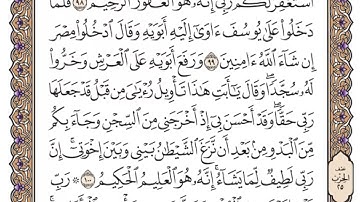 أَسْتَغْفِرُ لَكُمْ رَبِّىٓ إِنَّهُۥ هُوَ ٱلْغَفُورُ ٱلرَّحِيمُ ٩٨ فَلَمَّا
دَخَلُوا۟ عَلَىٰ يُوسُفَ ءَاوَىٰٓ إِلَيْهِ أَبَوَيْهِ وَقَالَ ٱدْخُلُوا۟ مِصْرَ
إِن شَآءَ ٱللَّهُ ءَامِنِينَ ٩٩ وَرَفَعَ أَبَوَيْهِ عَلَى ٱلْعَرْشِ وَخَرُّوا۟
لَهُۥ سُجَّدًا ۖ وَقَالَ يَٰٓأَبَتِ هَٰذَا تَأْوِيلُ رُءْيَٰىَ مِن قَبْلُ قَدْ جَعَلَهَا
رَبِّى حَقًّا ۖ وَقَدْ أَحْسَنَ بِىٓ إِذْ أَخْرَجَنِى مِنَ ٱلسِّجْنِ وَجَآءَ بِكُم
مِّنَ ٱلْبَدْوِ مِنۢ بَعْدِ أَن نَّزَغَ ٱلشَّيْطَٰنُ بَيْنِى وَبَيْنَ إِخْوَتِىٓ ۚ إِنَّ
رَبِّى لَطِيفٌ لِّمَا يَشَآءُ ۚ إِنَّهُۥ هُوَ ٱلْعَلِيمُ ٱلْحَكِيمُ ١٠٠ ۞ رَبِّ
نصف
الحزب
٢٥